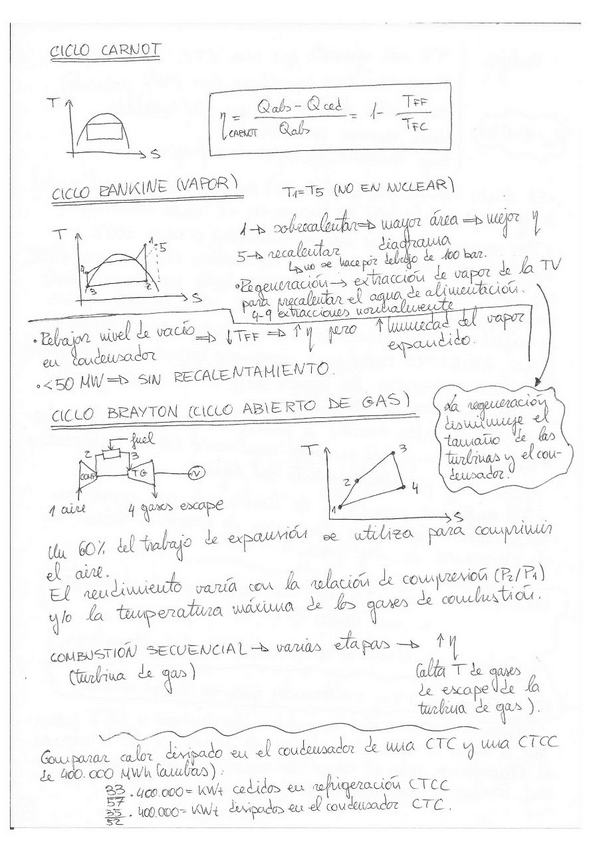 CICLO CARNOT
T
S
η CARNOT = Qabs - Qced / Qabs = 1 - TFF / TFC
CICLO RANKINE (VAPOR)
T1=T5 (NO EN NUCLEAR)
T
1
5
4
3
2
S
1 → sobrecalentar ⇒ mayor área ⇒ mejor η
diagrama
5 → recalentar
↳ no se hace por debajo de 100 bar.
• Regeneración → extracción de vapor de la TV
para precalentar el agua de alimentación.
4-9 extracciones normalmente
• Rebajar nivel de vacío ⇒ ↓TFF ⇒ ↑η pero ↑humedad del vapor
en condensador
expandido.
• <50 MW ⇒ SIN RECALENTAMIENTO.
CICLO BRAYTON (CICLO ABIERTO DE GAS)
La regeneración
disminuye el
tamaño de las
turbinas y el con-
densador.
fuel
2
3
COMP
TG
1 aire
4 gases escape
T
3
2
4
1
S
Un 60% del trabajo de expansión se utiliza para comprimir
el aire.
El rendimiento varía con la relación de compresión (P2/P1)
y/o la temperatura máxima de los gases de combustión.
COMBUSTIÓN SECUENCIAL → varias etapas → ↑η
(turbina de gas)
(alta T de gases
de escape de la
turbina de gas).
Comparar calor disipado en el condensador de una CTC y una CTCC
de 400.000 MWh (ambas):
33/57 . 400.000 = KWt cedidos en refrigeración CTCC
35/52 . 400.000 = KWt disipados en el condensador CTC.